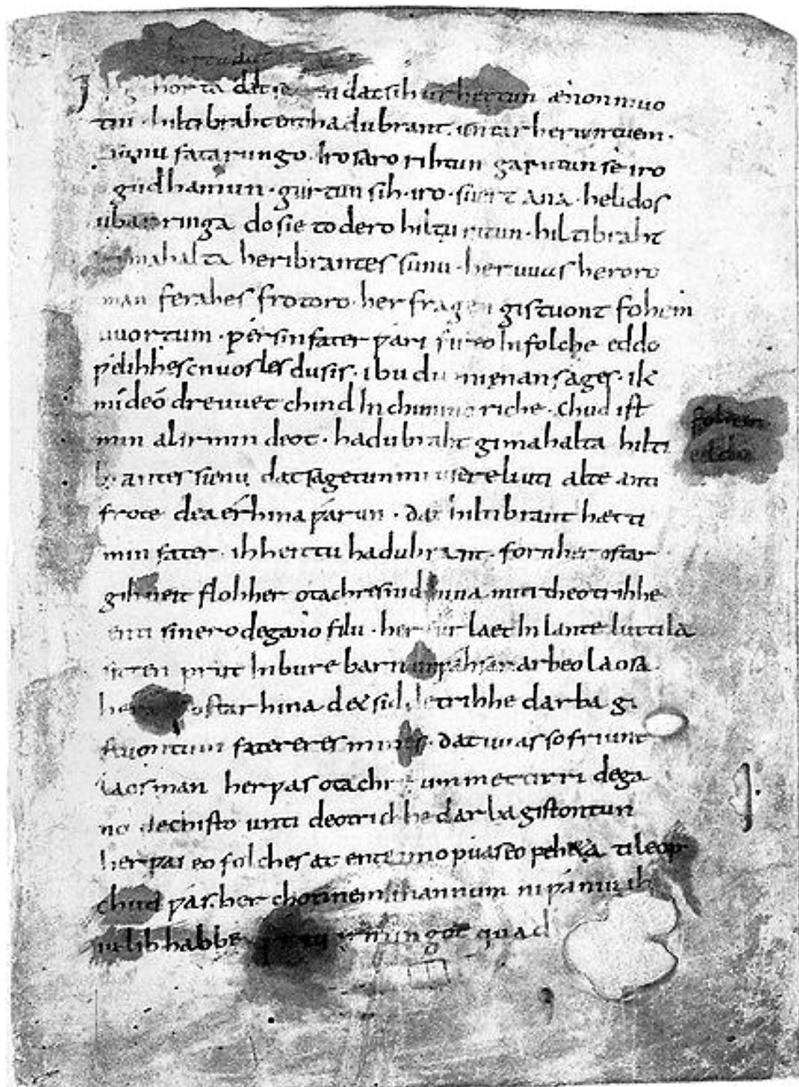 Ik gihorta dat seggen dat sih urhettun ænon muo
tin · hiltibraht enti hadubrant · untar heriun tuem ·
sunu fatarungo · iro saro rihtun garutun sê iro
gudhamun · gurtun sih · iro · suert ana · helidos
ubar ringa do sie to dero hiltu ritun · hiltibraht
gimahalta heribrantes sunu · her uuas heroro
man ferahes frotoro · her fragen gistuont fohem
uuortum · ƿer sin fater ƿari fireo In folche eddo
ƿelihhes cnuosles du sis · ibu du mi enan sages · ik
mideo dre uuet chind In chunincriche · chud ist
min al irmin deot · hadubraht gimahalta hilti
brantes sunu dat sagetun mi usere liuti alte anti
frote dea érhina ƿarun · dat hiltibrant hætti
min fater · ih heittu hadubrant · forn her ostar
gihueit floh her otachres nid hina miti theotrihhe
enti sinero degano filu · her furlaet In lante luttila
sitten prut In bure barn unƿahsan arbeo laosa
her ostar hina det sid detrihhe darba gi
stuontun fateres mines · dat uuas so friunt
laos man her ƿas otachre ummettirri dega
no dechisto unti deotrichhe darba gistontun
her ƿas eo folches at ente imo ƿuas eo ƿeheta ti leop
chud ƿas her chonnem mannum ni ƿaniu ih
iu lib habbe irmingot quad
fohem
eddo